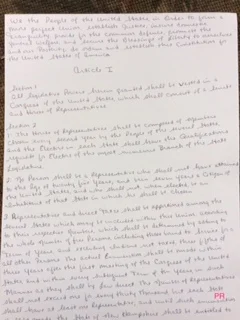 We the People of the United States in Order to form a
more perfect union establish Justice, insure domestic
tranquility provide for the common defence, promote the
general Welfare and secure the Blessings of liberty to ourselves
and our Posterity do ordain and establish this Constitution for
the United States of America
Article I
Section 1
All legislative Powers herein granted shall be vested in a
Congress of the United States, which shall consist of a Senate
and House of Representatives
Section 2
1 The House of Representatives shall be composed of members
chosen every second year by the People of the several States
and the Electors in each State shall have the Qualifications
requisite for Electors of the most numerous Branch of the State
Legislature
2 No Person shall be a Representative who shall not have attained
to the Age of twenty five years, and been seven years a Citizen of
the United States, and who shall not when elected be an
inhabitant of that State in which he shall be chosen
3 Representatives and direct Taxes shall be apportioned among the
several States which may be included within this Union, according
to their respective Numbers, which shall be determined by adding to
the whole Number of free Persons including those bound to Service for a
Term of years and excluding Indians not taxed, three fifths of
all other Persons the actual Enumeration shall be made within
three years after the first meeting of the Congress of the United
States and within every subsequent Term of ten years in such
Manner as they shall by law direct The Number of Representatives
shall not exceed one for every thirty Thousand but each State
shall have at least one Representative and until such enumeration
shall be made, the State of New Hampshire shall be entitled to
PR